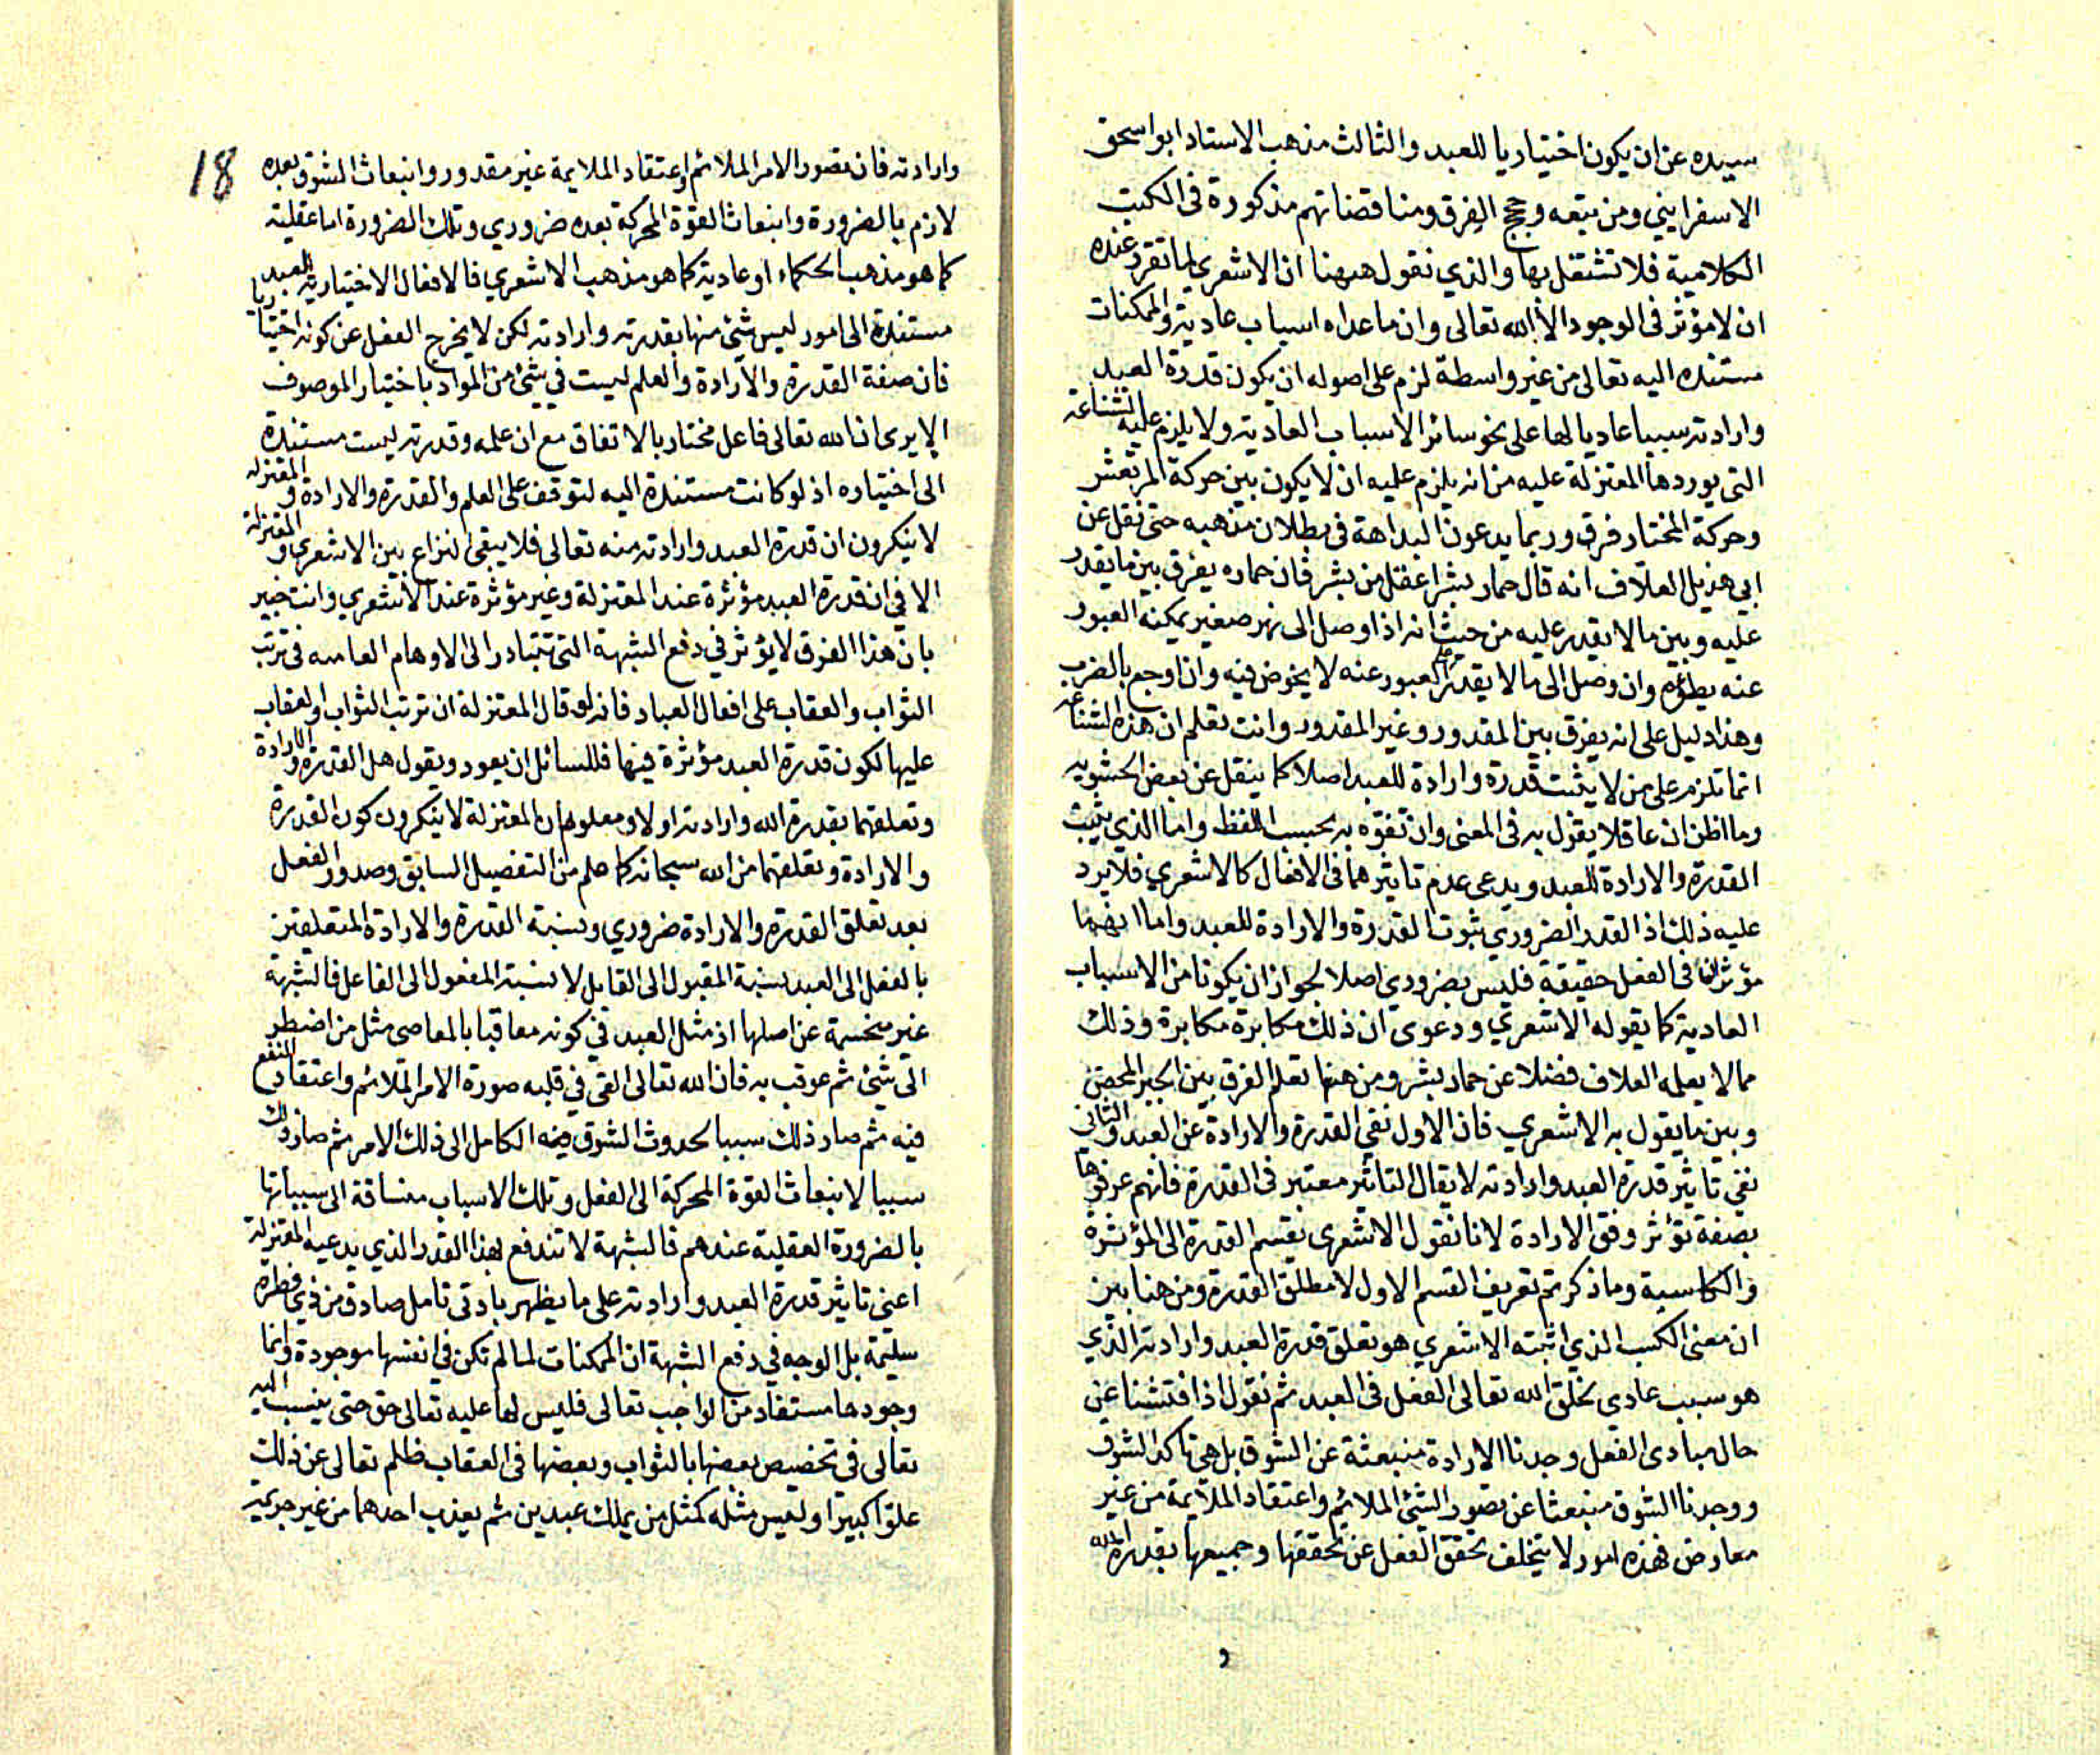 سيده عن ان يكون اختياريا للعبد والثالث مذهب الاستاد ابو اسحق
الاسفرايني ومن تبعه وحجج الفرق ومناقضاتهم مذكورة فى الكتب
الكلامية فلا نشتغل بها والذي نقول ههنا ان الاشعري لما تقرر عنده
ان لا مؤثر فى الوجود الا الله تعالى وان ما عداه اسباب عادية والممكنات
مستنده اليه تعالى من غير واسطة لزم على اصوله ان يكون قدرة العبد
وارادته سببا عاديا لها على نحو سائر الاسباب العادية ولا يلزم عليه الشناعة
التي يوردها المعتزلة عليه من انه يلزم عليه ان لا يكون بين حركة المرتعش
وحركة المختار فرق وربما يدعون البداهة فى بطلان مذهبه حتى نقل عن
ابي هذيل العلاف انه قال حمار بشر اعقل من بشر فان حماره يفرق بين ما يقدر
عليه وبين ما لا يقدر عليه من حيث انه اذا وصل الى نهر صغير يمكنه العبور
عنه يطؤه وان وصل الى ما لا يقدر على العبور عنه لا يخوض فيه وان اوجع بالضرب
وهذا دليل على انه يفرق بين المقدور وغير المقدور وانت تعلم ان هذه الشناعة
انما تلزم على من لا يثبت قدرة وارادة للعبد اصلا كما ينقل عن بعض الحشوية
وما اظن ان عاقلا يقول به فى المعنى وان تفوه به بحسب اللفظ واما الذي يثبت
القدرة والارادة للعبد ويدعى عدم تاثيرهما فى الافعال كالاشعري فلا يرد
عليه ذلك اذ القدر الضروري ثبوت القدرة والارادة للعبد واما انهما
مؤثران فى الفعل حقيقة فليس بضروري اصلا لجواز ان يكونا من الاسباب
العادية كما يقوله الاشعري ودعوى ان ذلك مكابرة مكابرة وذلك
مما لا يعلمه العلاف فضلا عن حمار بشر ومن هنا تعلم الفرق بين الجبر المحض
وبين ما يقول به الاشعري فان الاول نفي القدرة والارادة عن العبد والثاني
نفي تاثير قدرة العبد وارادته لا يقال التاثير معتبر فى القدرة فانهم عرفوها
بصفة تؤثر وفق الارادة لانا نقول الاشعرى يقسم القدرة الى المؤثرة
والكاسبة وما ذكرتم تعريف القسم الاول لا مطلق القدرة ومن هنا يبين
ان معنى الكسب الذي اثبته الاشعري هو تعلق قدرة العبد وارادته الذي
هو سبب عادى لخلق الله تعالى الفعل فى العبد ثم نقول اذا فتشنا عن
حال مبادى الفعل وجدنا الارادة منبعثة عن الشوق بل هي تاكد الشوق
ووجدنا الشوق منبعثا عن تصور الشئ الملائم واعتقاد الملايمة من غير
معارض فهذه امور لا يتخلف تحقق الفعل عن تحققها وجميعها بقدرة الله
و
18
وارادته فان تصور الامر الملائم واعتقاد الملايمة غير مقدور وانبعاث الشوق بعده
لازم بالضرورة وانبعاث القوة المحركة بعده ضروري وتلك الضرورة اما عقلية
كما هو مذهب الحكماء او عادية كما هو مذهب الاشعري فالافعال الاختيارية للعبد
مستندة الى امور ليس شئ منها بقدرته وارادته لكن لا يخرج الفعل عن كونه اختياريا
فان صفة القدرة والارادة والعلم ليست في شئ من المواد باختيار الموصوف
الا يرى ان الله تعالى فاعل مختار بالاتفاق مع ان علمه وقدرته ليست مستندة
الى اختياره اذ لو كانت مستندة اليه لتوقف على العلم والقدرة والارادة والمعتزلة
لا ينكرون ان قدرة العبد وارادته منه تعالى فلا يبقى النزاع بين الاشعري والمعتزلة
الا في ان قدرة العبد مؤثرة عند المعتزلة وغير مؤثرة عند الاشعري وانت خبير
بان هذا الفرق لا يؤثر في دفع الشبهة التى تتبادر الى الاوهام العامه فى ترتب
الثواب والعقاب على افعال العباد فانه لو قال المعتزلة ان ترتب الثواب او العقاب
عليها لكون قدرة العبد مؤثرة فيها فللسائل ان يعود ويقول هل القدرة والارادة
وتعلقهما بقدرة الله وارادته او لا ومعلوم ان المعتزلة لا ينكرون كون القدرة
والارادة وتعلقهما من الله سبحانه كما علم من التفصيل السابق وصدور الفعل
بعد تعلق القدرة والارادة ضروري ونسبة القدرة والارادة المتعلقين
بالفعل الى العبد نسبة المقبول الى القابل لا نسبة المفعول الى الفاعل فالشبهة
غير منحسمة عن اصلها اذ مثل العبد في كونه معاقبا بالمعاصى مثل من اضطر
الى شئ ثم عوقب به فان الله تعالى القى في قلبه صورة الامر الملائم واعتقاد النفع
فيه ثم صار ذلك سببا لحدوث الشوق منه الكامل الى ذلك الامر ثم صار ذلك
سببا لانبعاث القوة المحركة الى الفعل وتلك الاسباب منساقة الى مسبباتها
بالضرورة العقلية عندهم فالشبهة لا تندفع بهذا القدر الذي يدعيه المعتزلة
اعنى تاثير قدرة العبد وارادته على ما يظهر بادنى تامل صادق من ذي فطرة
سليمة بل الوجه في دفع الشبهة ان الممكنات لما لم تكن في انفسها موجودة وانما
وجودها مستفاد من الواجب تعالى فليس لها عليه تعالى حق حتى ينسب اليه
تعالى فى تخصيص بعضها بالثواب وبعضها فى العقاب ظلم تعالى عن ذلك
علوا كبيرا وليس مثله كمثل من يملك عبدين ثم يعذب احدهما من غير جريمة